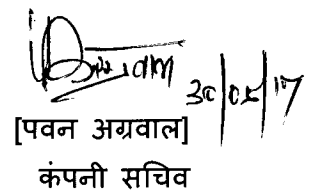 30/05/17
[पवन अग्रवाल]
कंपनी सचिव